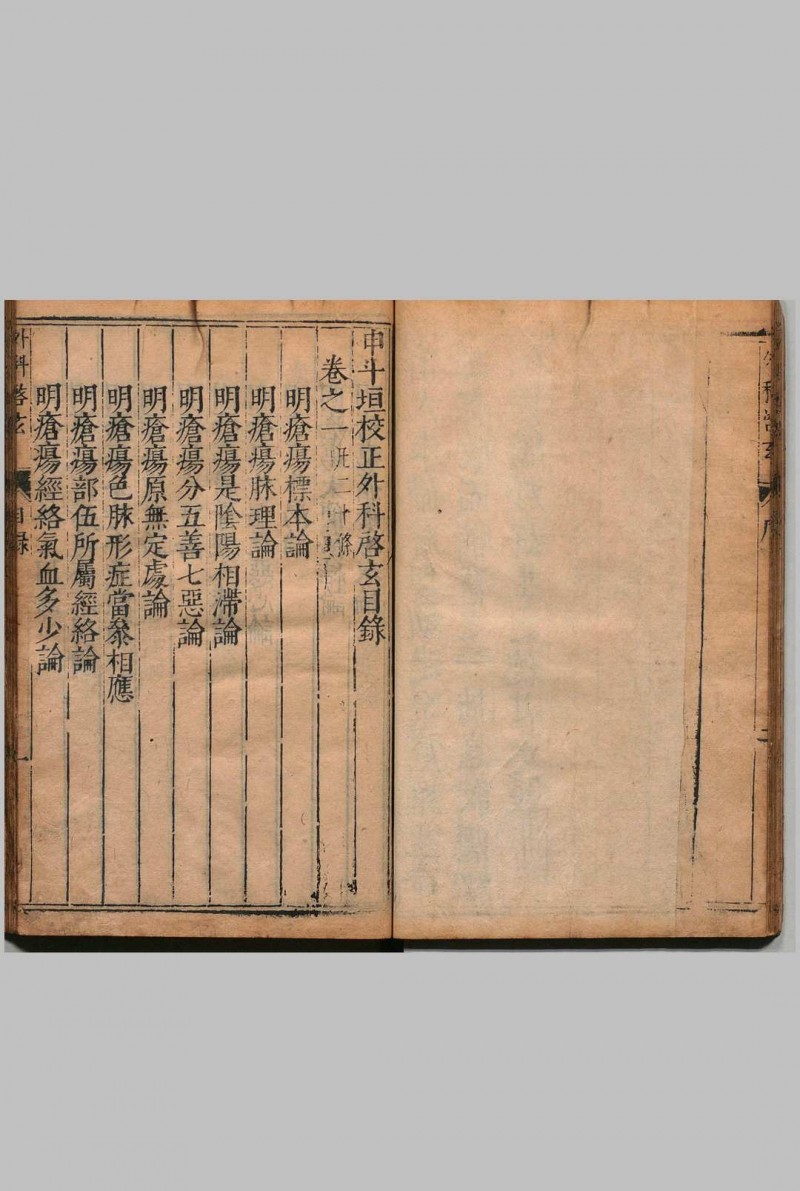 申斗垣校正外科啓玄目錄
卷之一
明瘡瘍標本論
明瘡瘍脉理論
明瘡瘍是陰陽相滯論
明瘡瘍分五善七惡論
明瘡瘍原無定處論
明瘡瘍色脉形症當叅相應
明瘡瘍部伍所屬經絡論
明瘡瘍經絡氣血多少論
外科啓玄
目錄
一